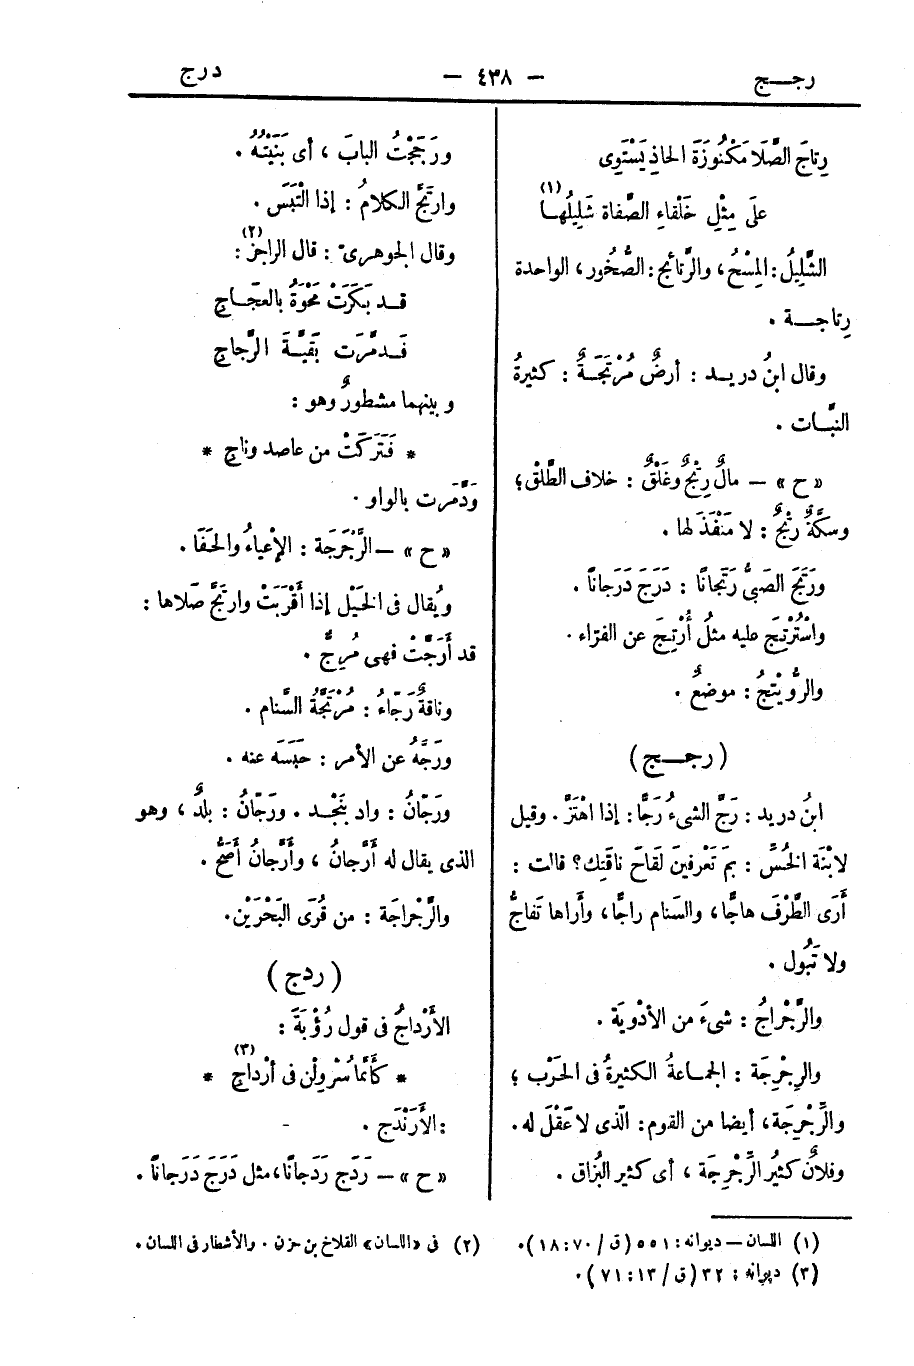 رجـــج
— ٤٣٨ —
درج
رِتاجَ الصَّلَا مَكْنُوزَةَ الحاذِ يَسْتَوِى
علَى مِثْلِ خَلْقاءِ الصَّفاة شَلِيلُهـا (١)
الشَّلِيلُ: المِسْحُ، والرَّتائِج: الصُّخُور، الواحدة
رِتاجـــة .
وقال ابنُ دريـد : أرضٌ مُرْتَجَةٌ : كثيرةُ
النبَّـات .
« ح » — مالٌ رِتْجٌ وغَلْقٌ : خلاف الطَّلْق؛
وسكَّةٌ رِتْجٌ : لا مَنْفَذَ لها .
ورَتَجَ الصَبىُّ رَتَجانًا : دَرَجَ دَرَجاناً .
واسْتُرْتِجَ عليه مثلُ أُرْتِجَ عن الفرّاء .
والرُّوَيْتِجُ : موضعٌ .
( رجـــج )
ابنُ دريد : رَجَّ الشىءُ رَجًّا : إذا اهْتَزَّ . وقيل
لابْنَة الخُسِّ : بِمَ تَعْرفينَ لَقَاحَ ناقَتِك؟ قالت :
أَرَى الطَّرْفَ هاجًّا، والسَّنام راجًّا، وأَراها تَفاجُّ
ولا تَبُول .
والرَّجْراجُ : شىءَ من الأدْوِيَة .
والرِجْرِجَة : الجماعةُ الكثيرةُ فى الحَرْب ؛
والرِّجْرِجَة، أيضا من القوم: الّذى لا عَقْلَ له.
وفلانٌ كثيرُ الرِّجْرِجَة ، أى كثير البُزاق .
ورَجَجْتُ البابَ ، أى بَنَيْتُهُ .
وارتَجَّ الكلامُ : إذا الْتَبَسَ .
وقال الجوهرىّ : قال الراجز (٢) :
قـد بَكَرَتْ مَحْوَةُ بالعجَّـاجِ
فَـدمَّرَت بَقيَّةَ الرَّجاجِ
وبينهما مشطورٌ وهو :
* فَتَرَكَتْ من عاصد وناجِ *
وَدَّمَرت بالواو .
« ح » — الرَّجْرَجَة : الإعْياءُ والحَفَا .
ويُقال فى الخَيْل إذا أَقْرَبَتْ وارتَجَّ صَلاها :
قد أَرَجَّتْ فهى مُرِجٌّ .
وناقةٌ رَجّاءُ : مُرْتَجَّةُ السَّنام .
ورَجَّهُ عن الأمر : حَبَسَه عنه .
ورَجّانُ : واد بنَجْـد . ورَجّانُ : بلدٌ ، وهو
الذى يقال له أَرَّجانُ ، وأَرَّجانُ أَصَحُّ .
والرَّجْراجَة : من قُرَى البَحْرَيْن.
( ردج )
الأَرْداجُ فى قول رُؤْبَةَ :
* كَأنَّما سُرْوِلْن فى أرْداجِ (٣) *
: الأَرَنْدَج .
« ح » — رَدَج رَدَجانًا، مثل دَرَجَ دَرَجاناً .
(١) اللسان — ديوانه : ٥٥١ (ق/٧٠:١٨).
(٢) فى «اللسان» القلاخ بن حزن . والأشطار فى اللسان .
(٣) ديوانه : ٣٢ (ق/١٣:٧١).